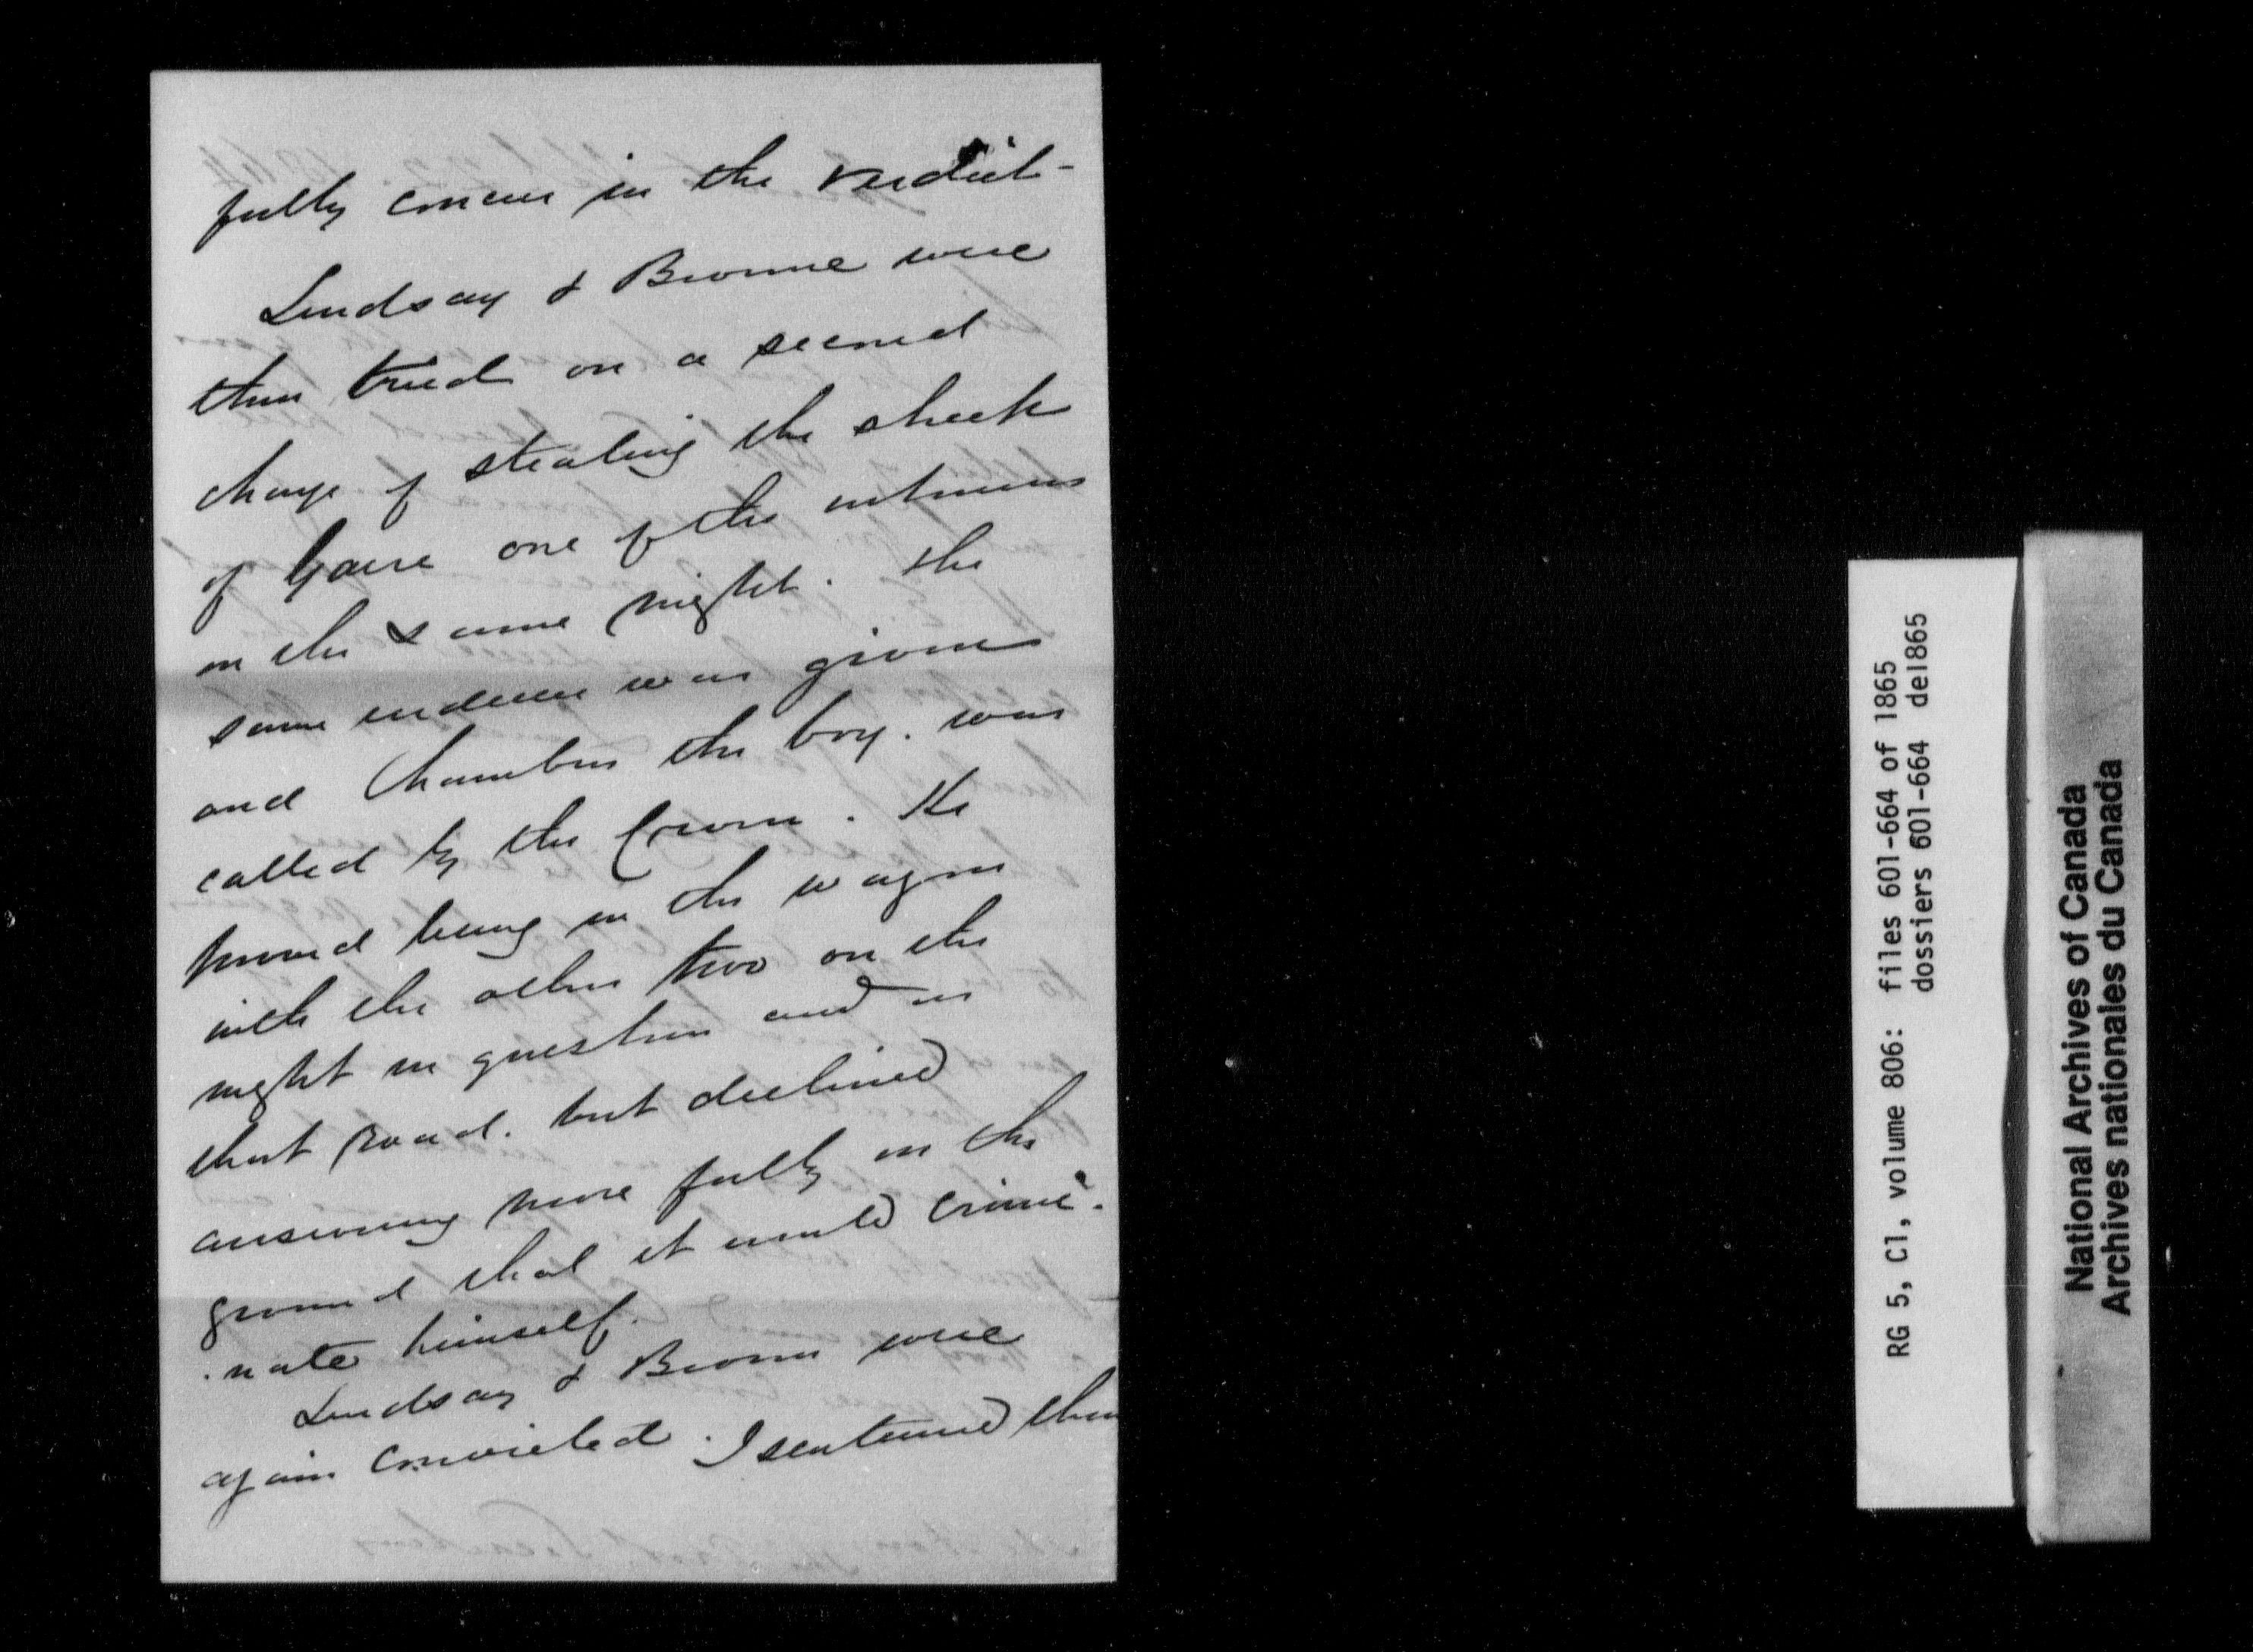 fully concur in the verdict -
Lindsay & Browne were
then tried on a second
charge of stealing the sheep
of one of the witnesses
on the same night. The
same evidence was given
and Chambers the boy. was
called by the Crown. He
proved being in the wagon
with the other two on the
night in question and on
that road. but declined
answering more fully on the
ground that it would crimi-
-nate himself.
Lindsay & Brown were
again convicted. I sentenced them
RG 5, C1, volume 806: files 601-664 of 1865
dossiers 601-664 de 1865
National Archives of Canada
Archives nationales du Canada